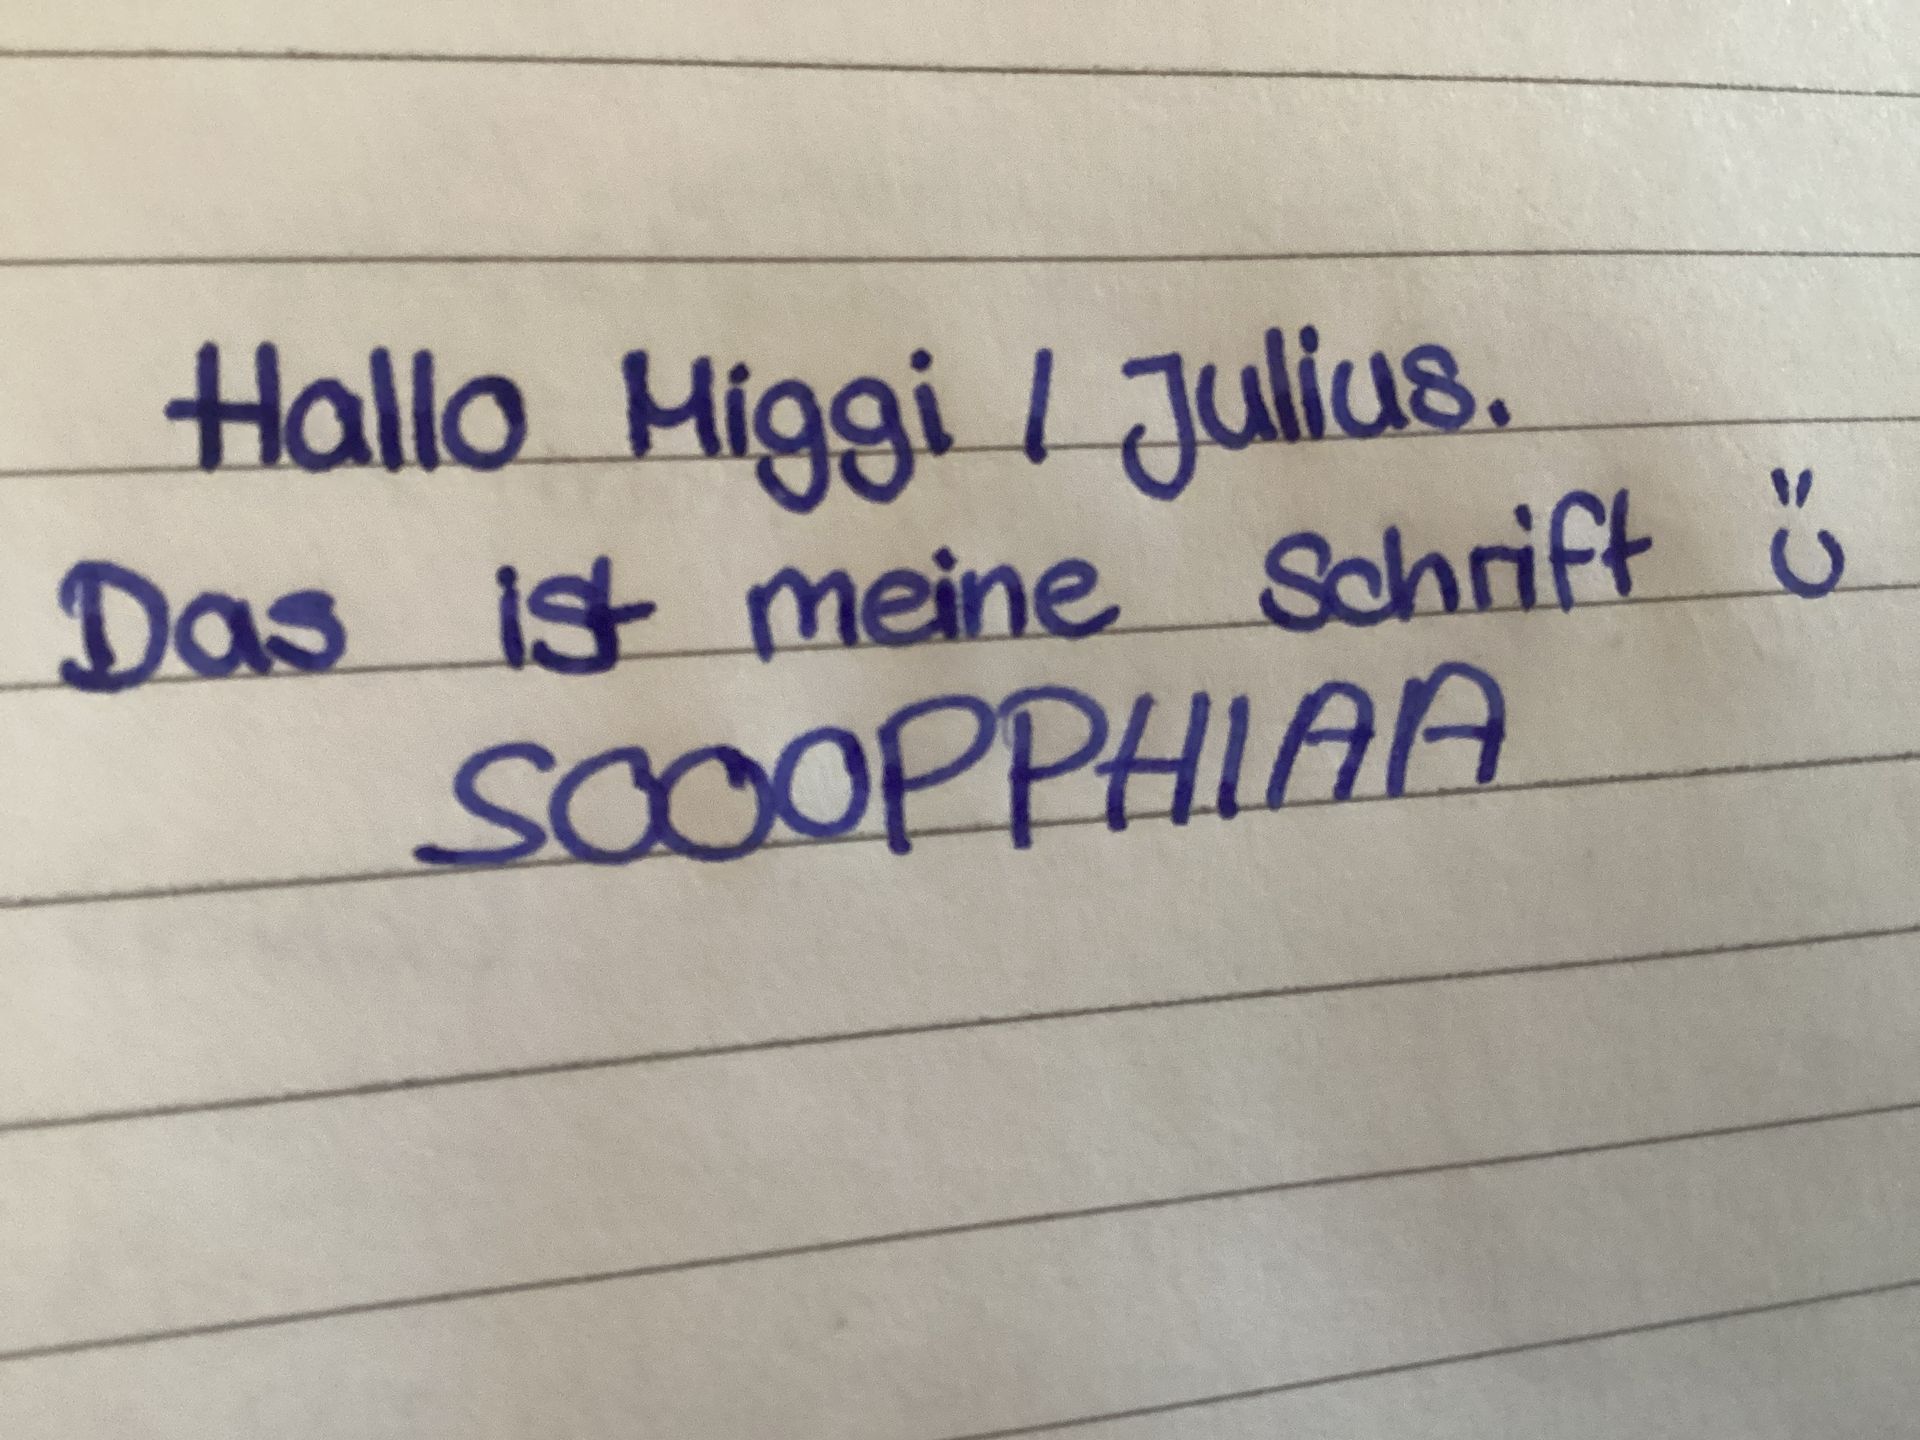 Hallo Miggi / Julius.
Das ist meine Schrift ü
SOOOPPHIAA